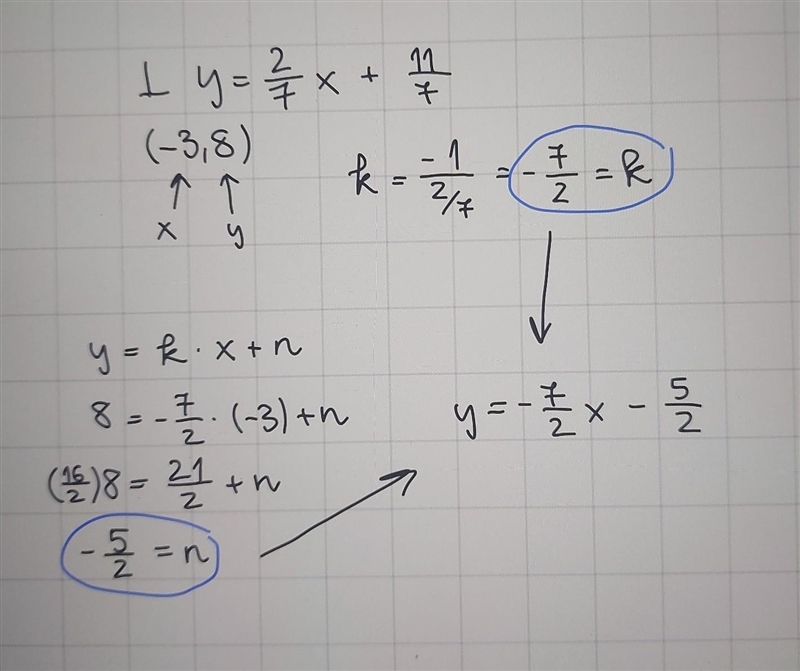 ⊥ y = 2/7 x + 11/7
(-3,8)
↑ ↑
x y
k = -1/(2/7) = -7/2 = k
↓
y = k · x + n
8 = -7/2 · (-3) + n
(16/2) 8 = 21/2 + n
-5/2 = n
↗
y = -7/2 x - 5/2